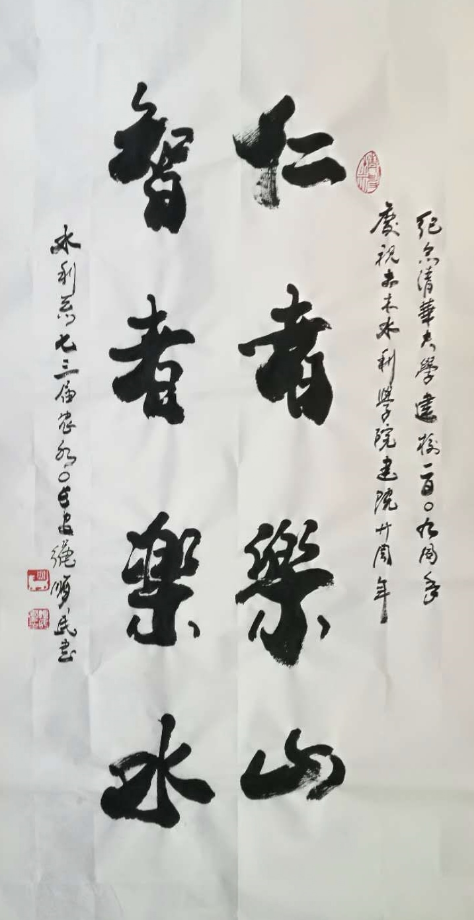 紀念清華大學建校一百〇九周年
慶祝土木水利學院建院廿周年
仁者樂山
智者樂水
水利系七三届農水〇
民書